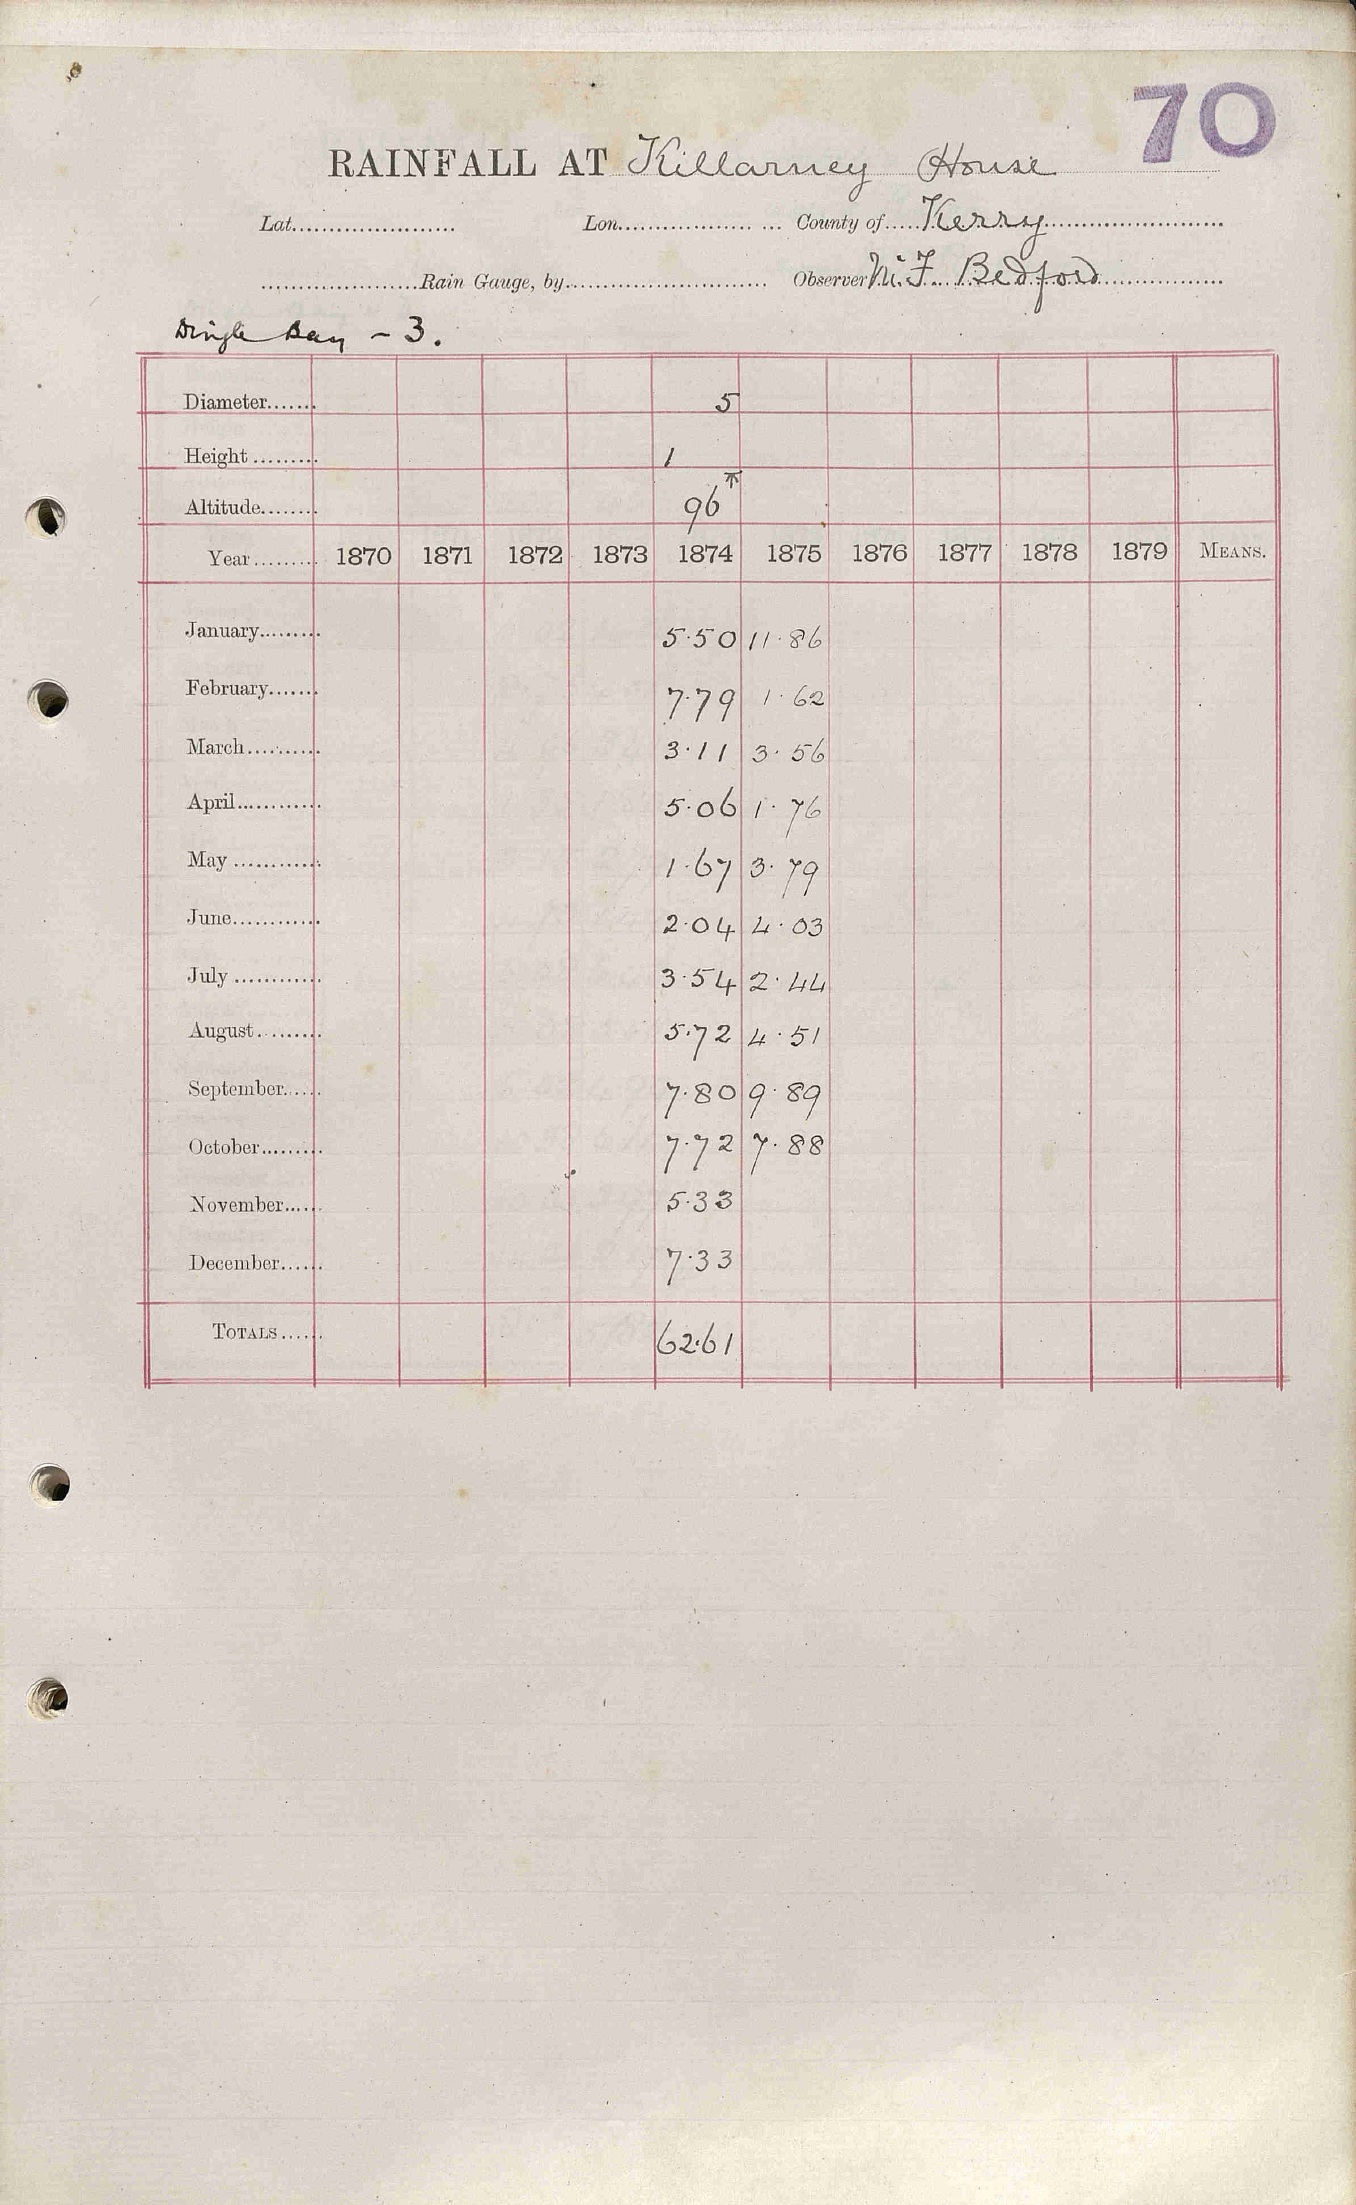 70
RAINFALL AT Killarney House
Lat. Lon. County of Kerry
Rain Gauge, by Observer M. F. Bedford
Dingle Bay - 3.
Diameter 5
Height 1
Altitude 96
Year 1870 1871 1872 1873 1874 1875 1876 1877 1878 1879 MEANS.
January 5.50 11.86
February 7.79 1.62
March 3.11 3.56
April 5.06 1.76
May 1.67 3.79
June 2.04 4.03
July 3.54 2.44
August 5.72 4.51
September 7.80 9.89
October 7.72 7.88
November 5.33
December 7.33
TOTALS 62.61